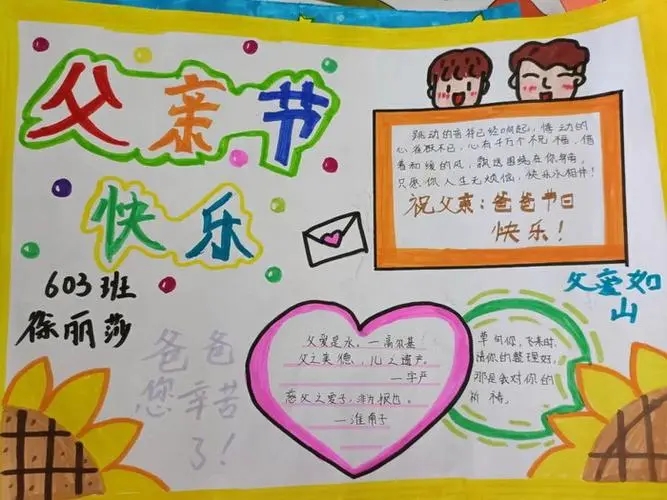 父亲节
快乐
603班
徐丽莎
爸爸
您辛苦
了!
跳动的音符已经响起,悸动的
心雀跃不已,心有千万个祝福,借
着和缓的风,飘送围绕在你身旁,
只愿你人生无烦恼,快乐永相伴!
祝父亲:爸爸节日
快乐!
父爱如
山
父爱是水。—高尔基
父之美德,儿之遗产。
—字严
慈父之爱子,非为报也。
—淮南子
草
你,飞来时,
请你的整理好,
那是会对你的
祈祷。